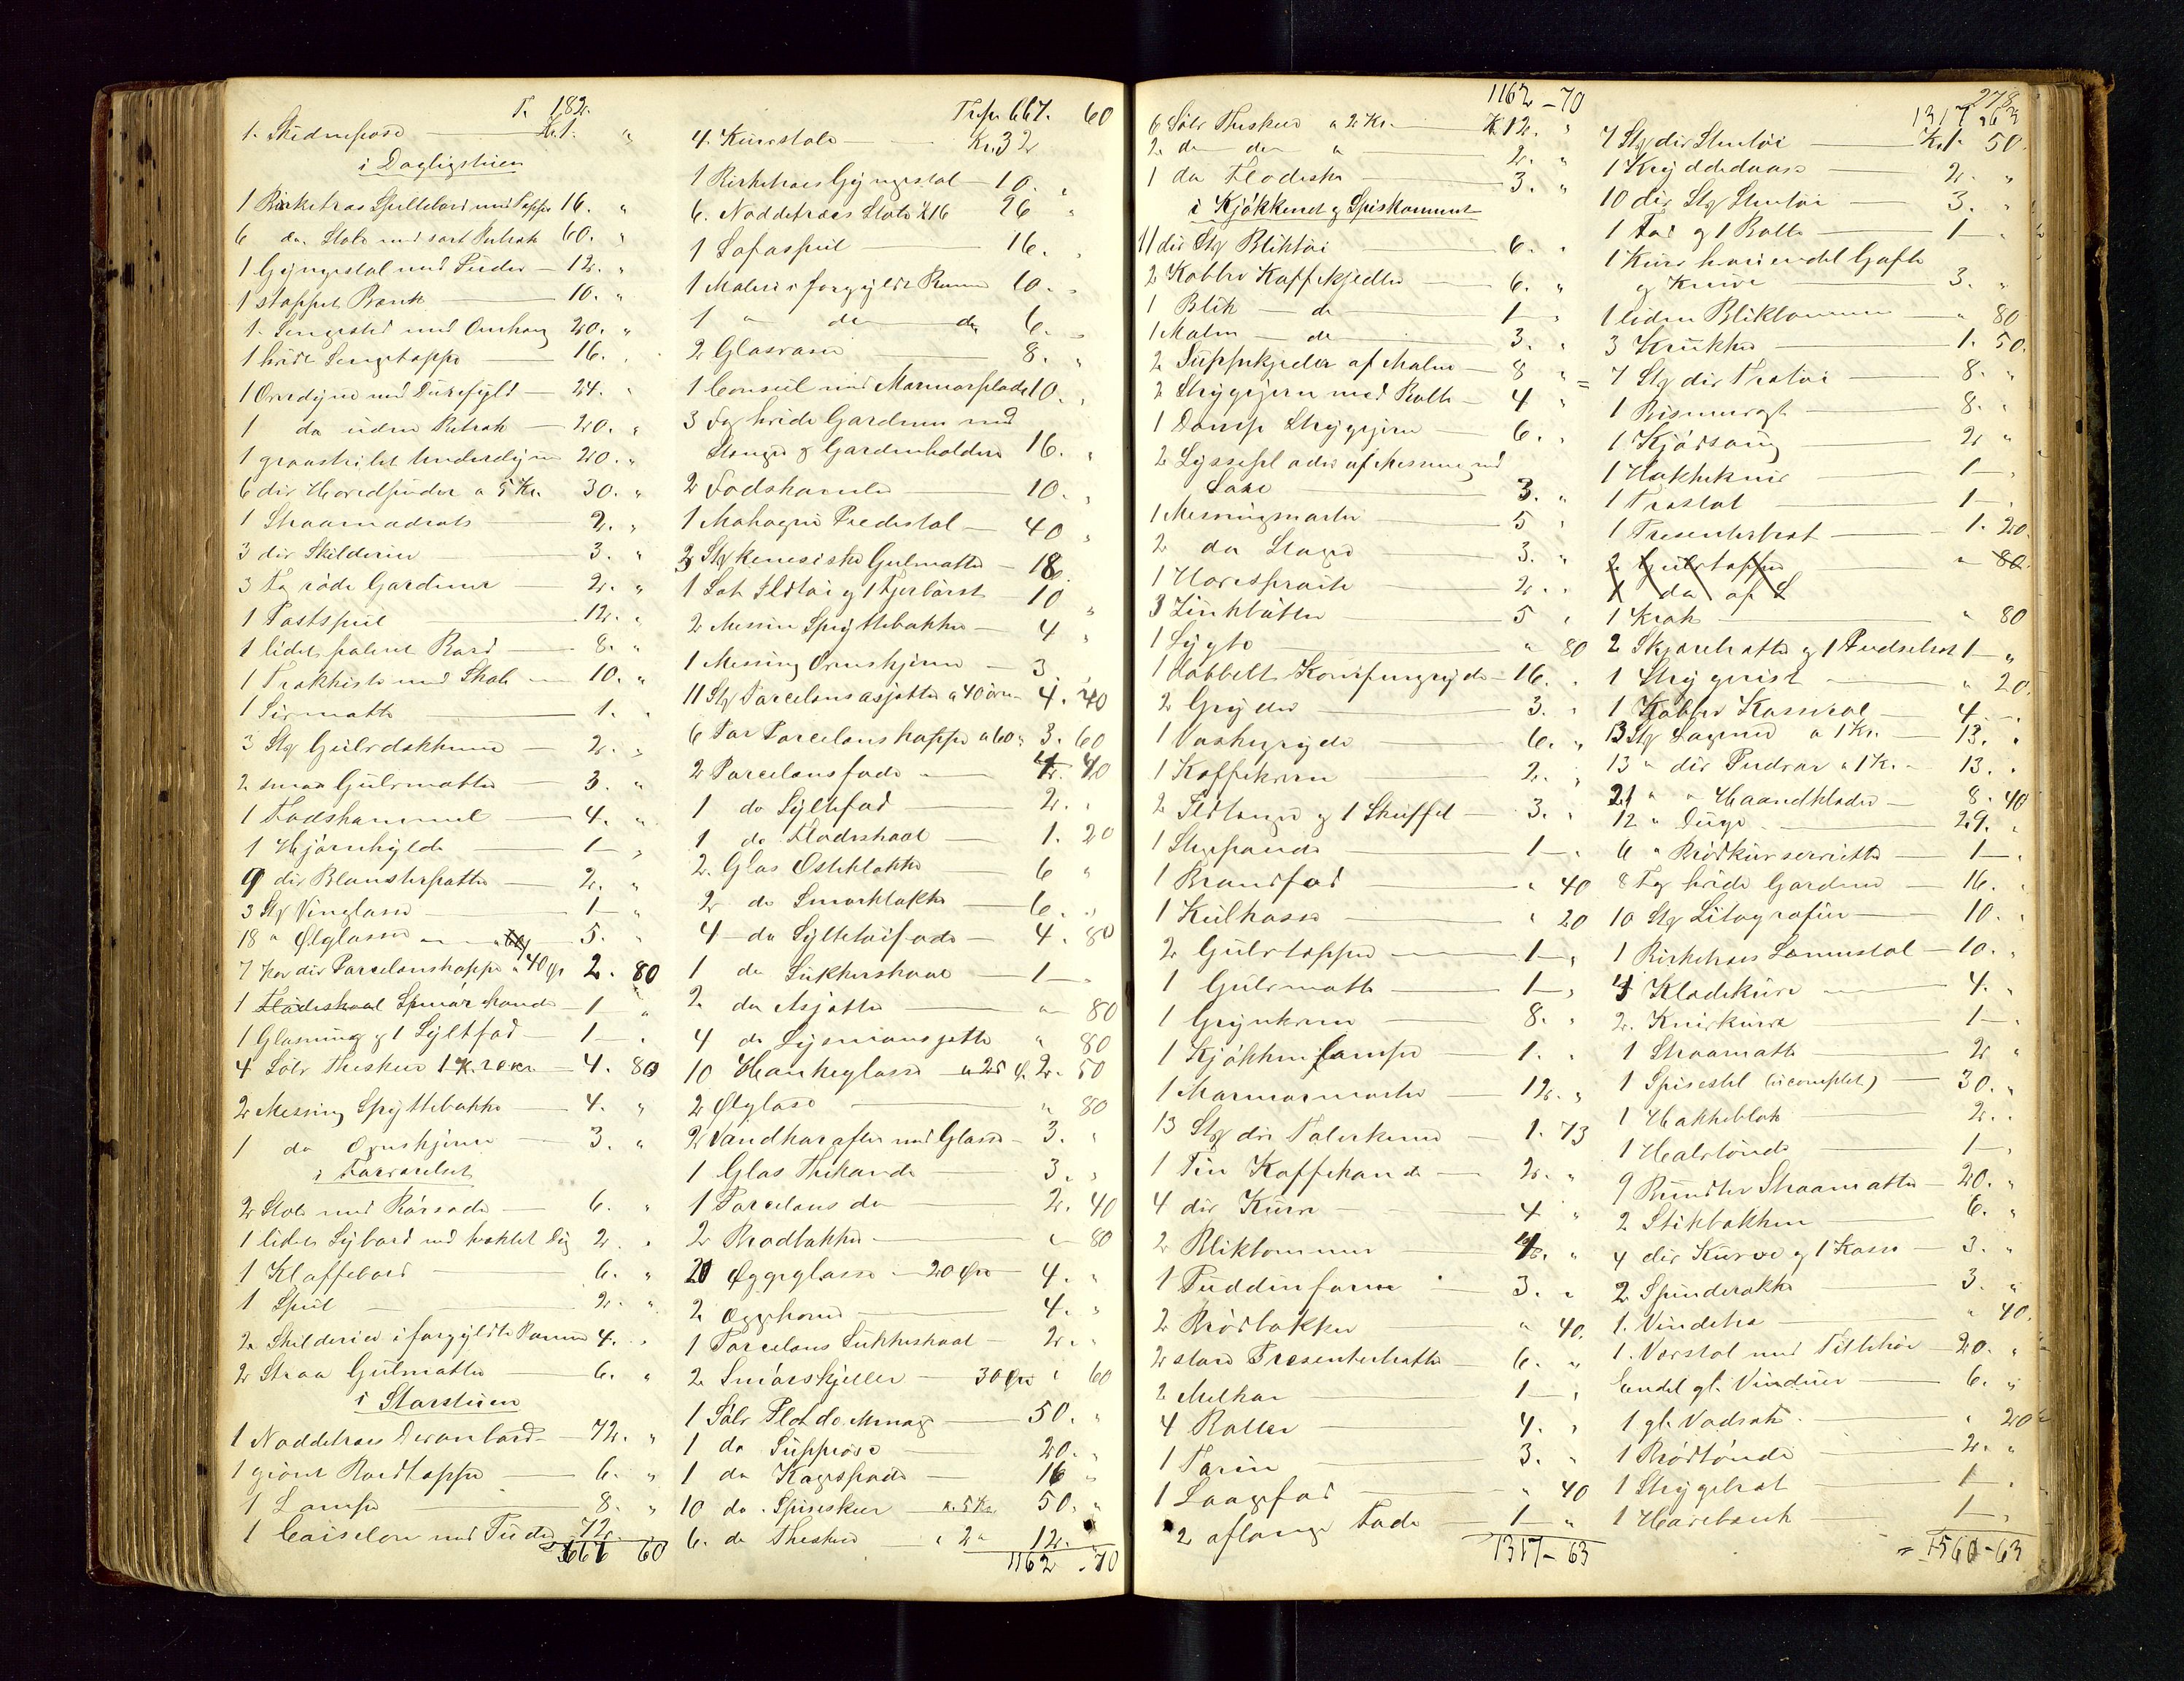 T. 182.
1. Skindpose Kr. 1. "
i Dagligstuen
1 Birketræs Spillebord med Tæppe 16. "
6 do. Stole med sort Betræk 60. "
1 Gyngestol med Puder 12. "
1 stoppet Bænk 10. "
1 Sengested med Omhæng 20. "
1 hvidt Sengetæppe 16. "
1 Overdyne med Duunfyld 24. "
1 do uden Betræk 20. "
1 graastribet Underdyne 20. "
6 div Hovedpuder a 5 Kr. 30. "
1 Straamadrats 2. "
3 div Skilderier 3. "
3 Fag røde Gardiner 2. "
1 Speil 12. "
1 lidet poleret Bord 8. "
1 Trækkiste med Skab 10. "
1 Sivmatte 1. "
3 Stk Gulvdækken 2. "
2 smaa Gulvmatter 3. "
1 Fodskammel 4. "
1 Hjørnehylde 1 "
9 div Blomsterpotter 2. "
3 Stk Vinglasse 1 "
18 " Ølglasse 5. "
7 Par div Porcelænskopper a 40 Ør 2. 80
1 Flødeskaal Smørkande 1 "
1 Glasmug og 1 Syltfad 1. "
4 Sølv Theskeer 1 Kr. 20 Ør 4. 80
2 Messing Spyttebakker 4. "
1 do Ovnskjærm 3. "
i Forværelset
2 Stole med Rørsæde 6. "
1 lidet Sybord med hæklet Dug 2. "
1 Klaffebord 6. "
1 Speil 2. "
2 Skilderier i forgyldte Rammer 4. "
2 Straa Gulvmatter 6. "
i Storstuen
1 Nøddetræs Divanbord 72. "
1 grønt Bordtæppe 6. "
1 Lampe 8. "
1 Caiselon med Puder 72
667 60
Transp. 667. 60
4. Kurvstole Kr. 32
1 Birketræs Gyngestol 10. "
6. Nøddetræs Stole a 16 96 "
1 Sofaspeil 16. "
1 Maleri i forgyldt Ramme 10. "
1 " do do 6. "
2 Glasvaser 8. "
1 Consul med Marmorplade 10. "
3 Fag hvide Gardiner med
Stænger og Gardinholdere 16. "
2 Fodskamler 10. "
1 Mahogni Piedestal 40 "
2 Stk kinesiske Gulvmatter 18
1 Sæt Ildtøi og 1 Fjerbørst 10 "
2 Messing Spyttebakker 4 "
1 Messing Ovnskjærm 3
11 Stk Porcelænsasjetter a 40 øre 4. 40
6 Par Porcelænskopper a 60 " 3. 60
2 Porcelænsfade 4. 40
1 do Syltefad 2. "
1 do Flødeskaal 1. 20
2. Glas Osteklokker 6 "
2 do Smørklokker 6. "
4 do Syltetøifade 4. 80
1 do Sukkerskaal 1 "
2 do Asjetter " 80
4 do Lysmansjetter " 80
10 Hankeglasse a 25 Ø. 2. 50
2 Ølglase " 80
2 Vandkarafler med Glasse 3. "
1 Glas Thekande 3. "
1 Porcelæns do 2. 40
2 Brødbakker " 80
20 Æggeglasse 20 Øre 4. "
2 Æggehøner 4. "
1 Porcelæns Sukkerskaal 2. "
2 Smørskjeller 30 Øre " 60
1 Sølv Plat de Menage 50. "
1 do Suppeøse 20. "
1 do Kagespade 16 "
10 do. Spiseskeer a 5 Kr. 50. "
6. do Theskeer " 2 " 12.
1162 . 70
1162 - 70
6 Sølv Theskeer a 2 Kr. Kr. 12. "
2 do do a 2. "
1 do Flødeske 3. "
i Kjøkkenet og Spiskammeret
11 div Stk Bliktøi 6. "
2 Kobber Kaffekjedler 6. "
1 Blik do 1 "
1 Malm do 3. "
2 Suppekjedler af Malm 8 "
2 Strygejern med Bolte 4 "
1 Damp Strygejern 6. "
2 Lysseplader af Messing med
Saxe 3. "
1 Messingmorter 5 "
2 do Stager 3. "
1 Havesprøite 2. "
3 Zinkbøtter 5 "
1 Lygte " 80
1 dobbelt Komfurgryde 16. "
2 Gryder 3. "
1 Vaskegryde 6. "
1 Kaffekværn 2. "
2 Ildtænger og 1 Skuffel 3. "
1 Stegepande 1 "
1 Brandfad " 40
1 Kulkasse " 20
2 Gulvtæpper 1 "
1 Gulvmatte 1 "
1 Grynkværn 8. "
1 Kjøkkenlampe 1. "
1 Marmormorter 12. "
13 Stk div Talerkener 1. 73
1 Tin Kaffekande 2. "
4 div Kurve 4 "
2 Bliktommer "
1 Puddinform 3. "
2 Brødbakker " 40.
2 store Presenterbrætte 6. "
2 Melkar 1 "
4 Baller 4. "
1 Terrin 3. "
1 Laagfad " 40
2 aflange Fade 1 "
1317 - 63
278
1317 " 63
7 Stk div Stentøi Kr. 1. 50.
1 Krydderdaase 2. "
10 div Stk Stentøi 3. "
1 Fad og 1 Bolle 1 "
1 Kurv hvori endel Gafler
og Knive 3. "
1 liden Bliktomme " 80
3 Krukker 1. 50.
7 Stk div Trætøi 8. "
1 Bismervægt 8. "
1 Kjødsaug 2 "
1 Hakkekniv 1 "
1 Træstol 1 "
1 Presenterbræt 1. 20.
2 Gulvtæpper " 80.
1 do af
1 Krak " 80
2 Skjærebrætte og 1 Pudsebræt 1 "
1 Strygerist " 20.
1 Kobber Kasserol 4. "
13 Stk Lagener a 1 Kr. 13. "
13 " div Pudevar a 1 Kr. 13. "
21 " " Haandklæder 8. 40
12 " Duge 29. "
6 " Brødkurvservietter 1 "
8 Fag hvide Gardiner 16. "
10 Stk Litografier 10. "
1 Birketræs Lænestol 10. "
4 Klædekurve 4. "
2. Knivkurve 1 "
1 Straamatte 2 "
1 Spisestel (ucomplet) 30. "
1 Hakkeblok 2. "
1 Halvtønde 1 "
9 Bundter Straamatter 20. "
2 Stikbækkener 6. "
4 div Kurve og 1 Kasse 3. "
2 Spinderokke 3. "
1. Vindetræ " 40.
1. Vævstol med Tilbehør 20. "
Endel gl. Vinduer 6. "
1 gl. Vadsæk " 20
1 Brødtønde 2. "
1 Strygebræt 1 "
1 Havebænk 1 "
= 1560 - 63